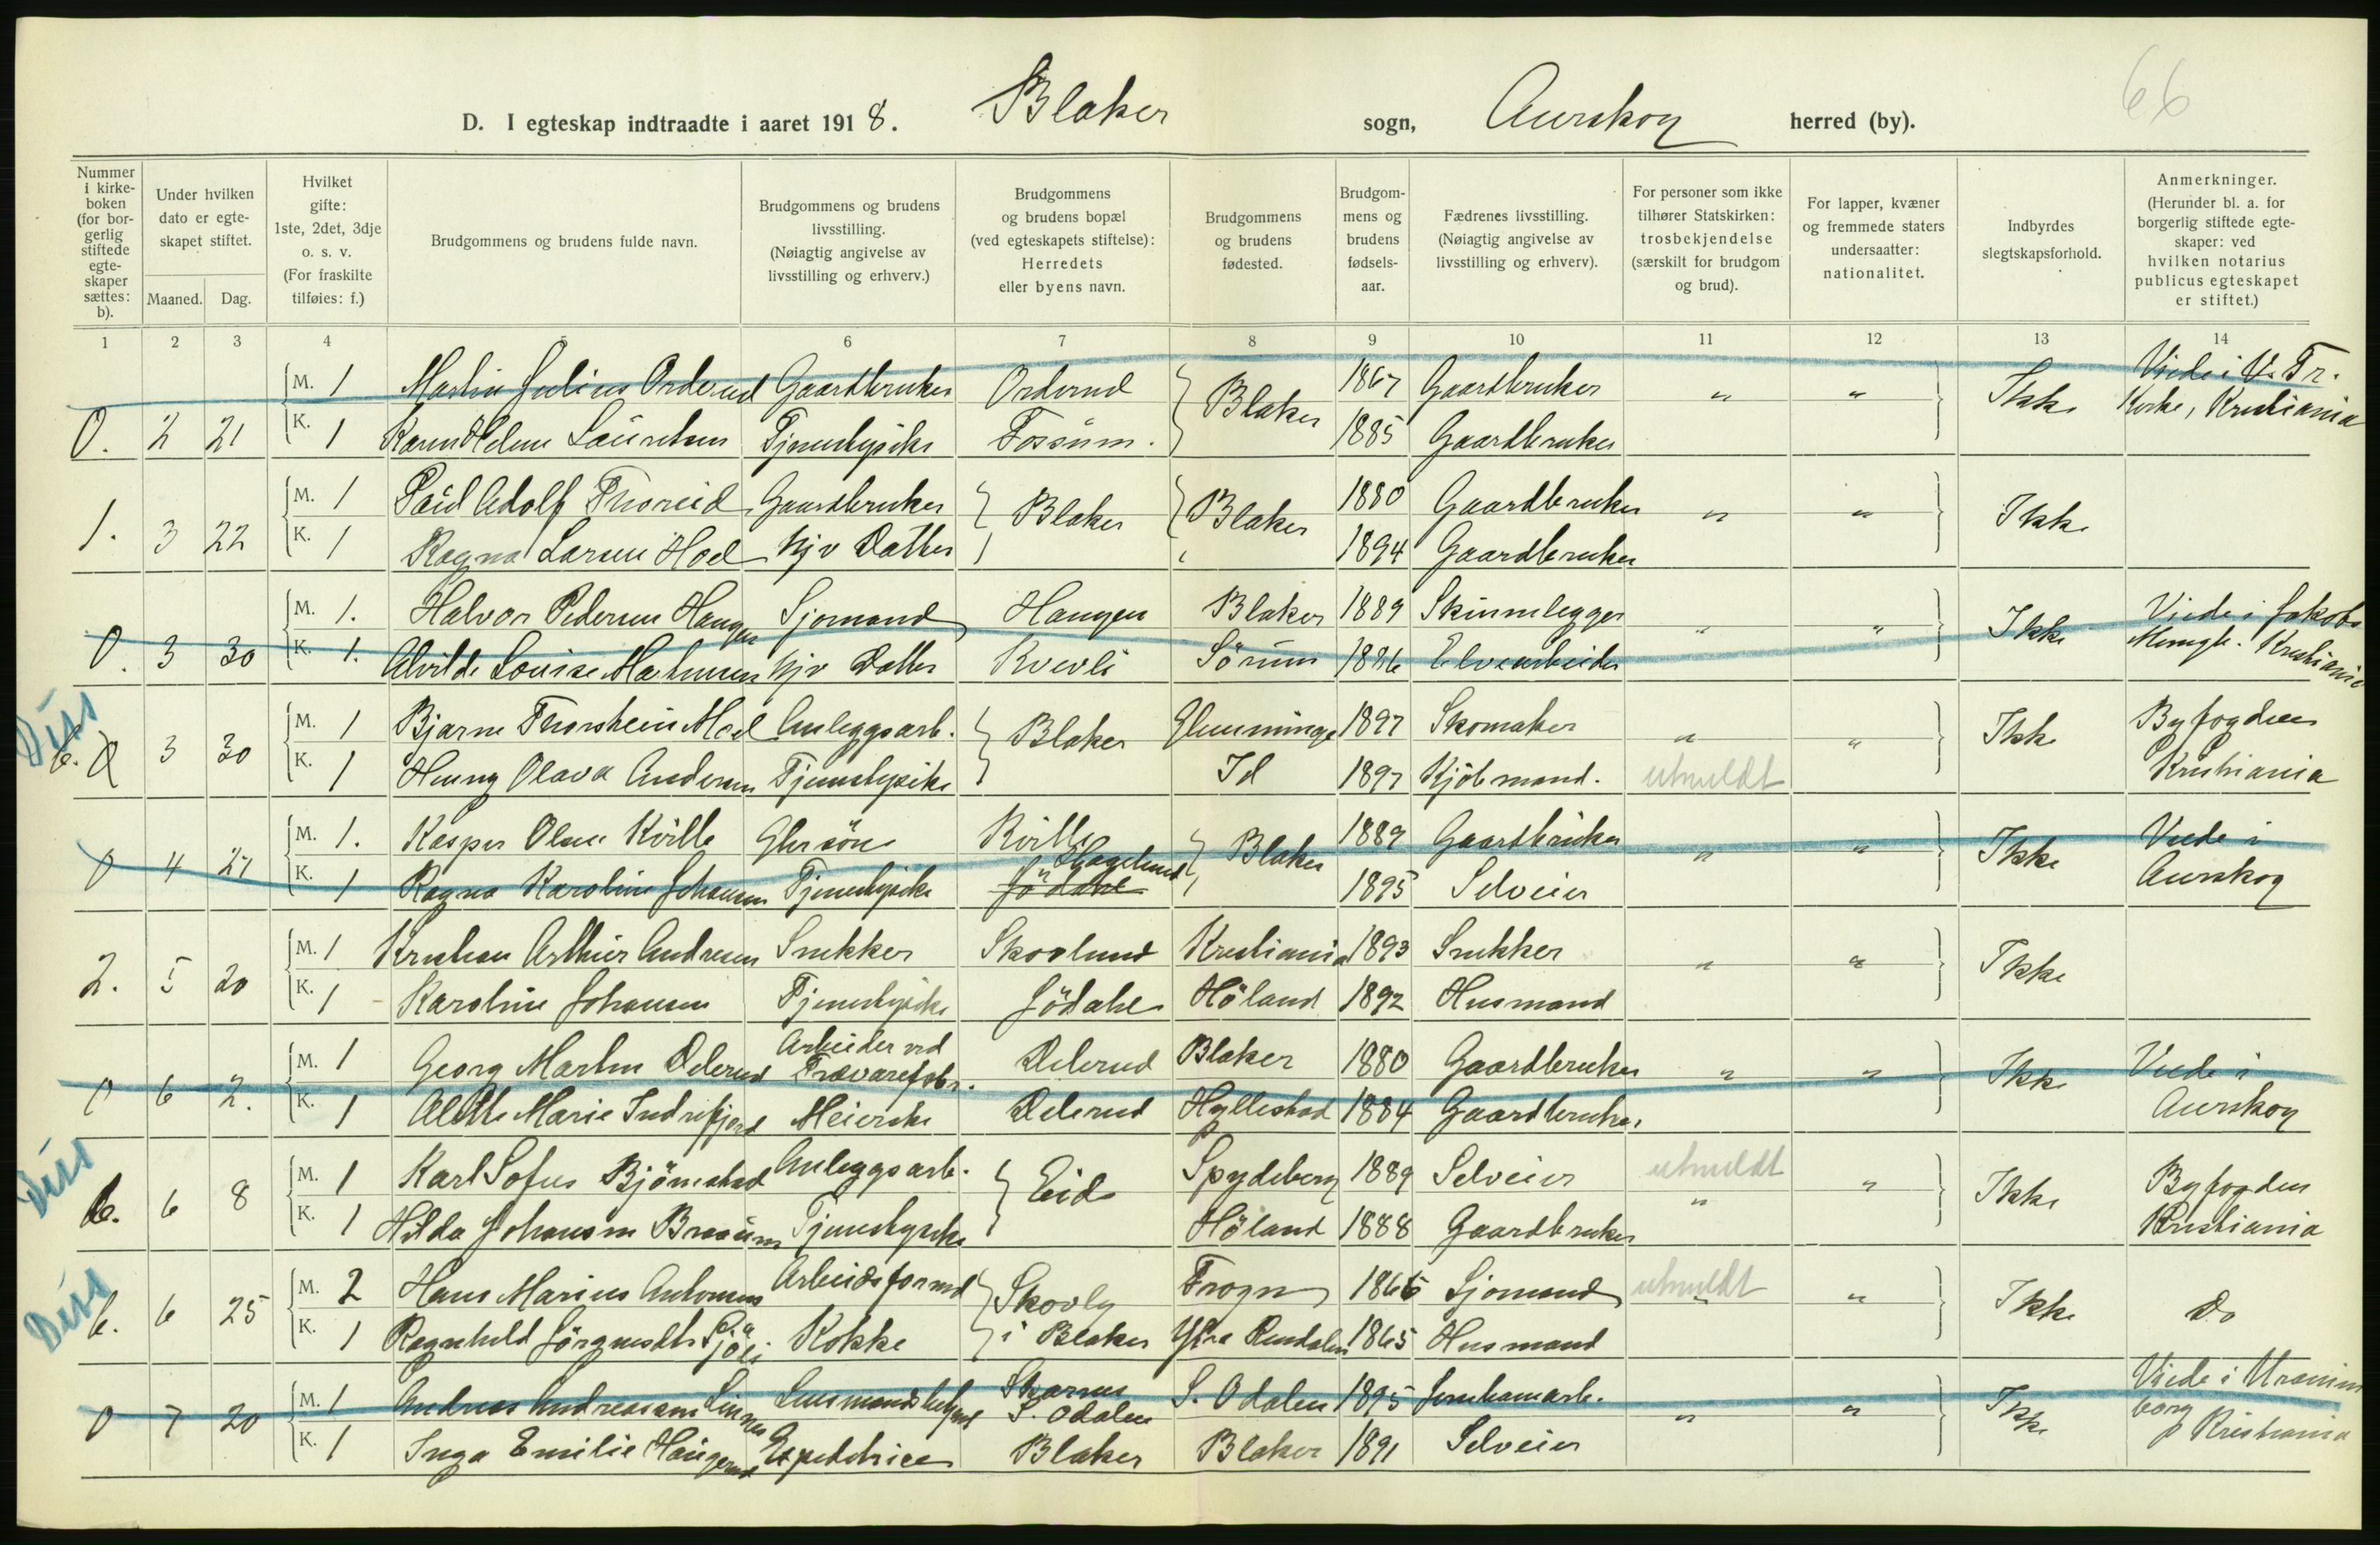 66
D. I egteskap indtraadte i aaret 1918. Blaker sogn, Aurskog herred (by).
Nummer i kirkeboken (for borgerlig stiftede egteskaper sættes: b).
Under hvilken dato er egteskapet stiftet.
Maaned. Dag.
Hvilket gifte: 1ste, 2det, 3dje o. s. v. (For fraskilte tilføies: f.)
Brudgommens og brudens fulde navn.
Brudgommens og brudens livsstilling. (Nøiagtig angivelse av livsstilling og erhverv.)
Brudgommens og brudens bopæl (ved egteskapets stiftelse): Herredets eller byens navn.
Brudgommens og brudens fødested.
Brudgommens og brudens fødselsaar.
Fædrenes livsstilling. (Nøiagtig angivelse av livsstilling og erhverv).
For personer som ikke tilhører Statskirken: trosbekjendelse (særskilt for brudgom og brud).
For lapper, kvæner og fremmede staters undersaatter: nationalitet.
Indbyrdes slegtskapsforhold.
Anmerkninger. (Herunder bl. a. for borgerlig stiftede egteskaper: ved hvilken notarius publicus egteskapet er stiftet.)
1 2 3 4 5 6 7 8 9 10 11 12 13 14
M. 1 Martin Julius Orderud Gaardbruker Orderud Blaker 1867 Gaardbruker " " Ikke Viede i V. Fr.
0. 2 21 K. 1 Karen Helene Lauretsen Tjenestepike Fossum. 1885 Gaardbruker Kirke, Kristiania
M. 1 Paul Adolf Thoreid Gaardbruker Blaker Blaker 1880 Gaardbruker " " Ikke
1. 3 22 K. 1 Ragna Larsen Hoel Hjv Datter 1894 Gaardbruker
M. 1. Halvor Pedersen Haugen Sjømand Haugen Blaker 1889 Skinnlegger " " Ikke Viede i Jakobs
0. 3 30 K. 1. Alvilde Louise Hjv Datter Kvevli Sörum 1886 Elvearbeider Kristiania
Diss
M. 1 Bjarne Thorstein Moel Anleggsarb. Blaker Glemminge 1897 Skomaker " " Ikke Byfogden
b. 0 3 30 K. 1 Henny Olava Andersen Tjenestepike Id 1897 Kjöbmand. utmeldt Kristiania
M. 1. Kasper Olsen Kville Grsön Kville Blaker 1889 Gaardbruker " " Ikke Viede i
0 4 27 K. 1 Ragna Karoline Johansen Tjenestepike Jödahl Hagelund 1895 Selveier Aurskog
M. 1 Kristian Arthur Andresen Snekker Skovlund Kristiania 1893 Snekker " " Ikke
2. 5 20 K. 1 Karoline Johansen Tjenestepike Jödahl Höland 1892 Husmand
M. 1 Georg Martin Delerud Arbeider ved Trævarefabr. Delerud Blaker 1880 Gaardbruker " " Ikke Viede i
0 6 2. K. 1 Alette Marie Indrefjord Meierske Delerud Hyllestad 1884 Gaardbruker Aurskog
Diss
M. 1 Karl Sofus Björnstad Anleggsarb. Eid Spydeberg 1889 Selveier utmeldt " Ikke Byfogden
b. 6 8 K. 1 Hilda Johansen Braaum Tjenestepike Höland 1888 Gaardbruker " Kristiania
Diss
M. 2 Hans Marius Antonsen Arbeidsformd Skovly Frogn 1866 Sjømand utmeldt " Ikke Do
b. 6 25 K. 1 Ragnhild Jörgensdtr Sjöli Kokke i Blaker Ytre Rendalen 1865 Husmand
M. 1 Andreas Andreassen Linnes Lensmandsbetjent Skarnes S. Odalen S. Odalen 1895 Jernbanearb. " " Ikke Viede i Uranienborg
0 7 20 K. 1 Inga Emilie Haugerud Expeditrice Blaker Blaker 1891 Selveier Kristiania